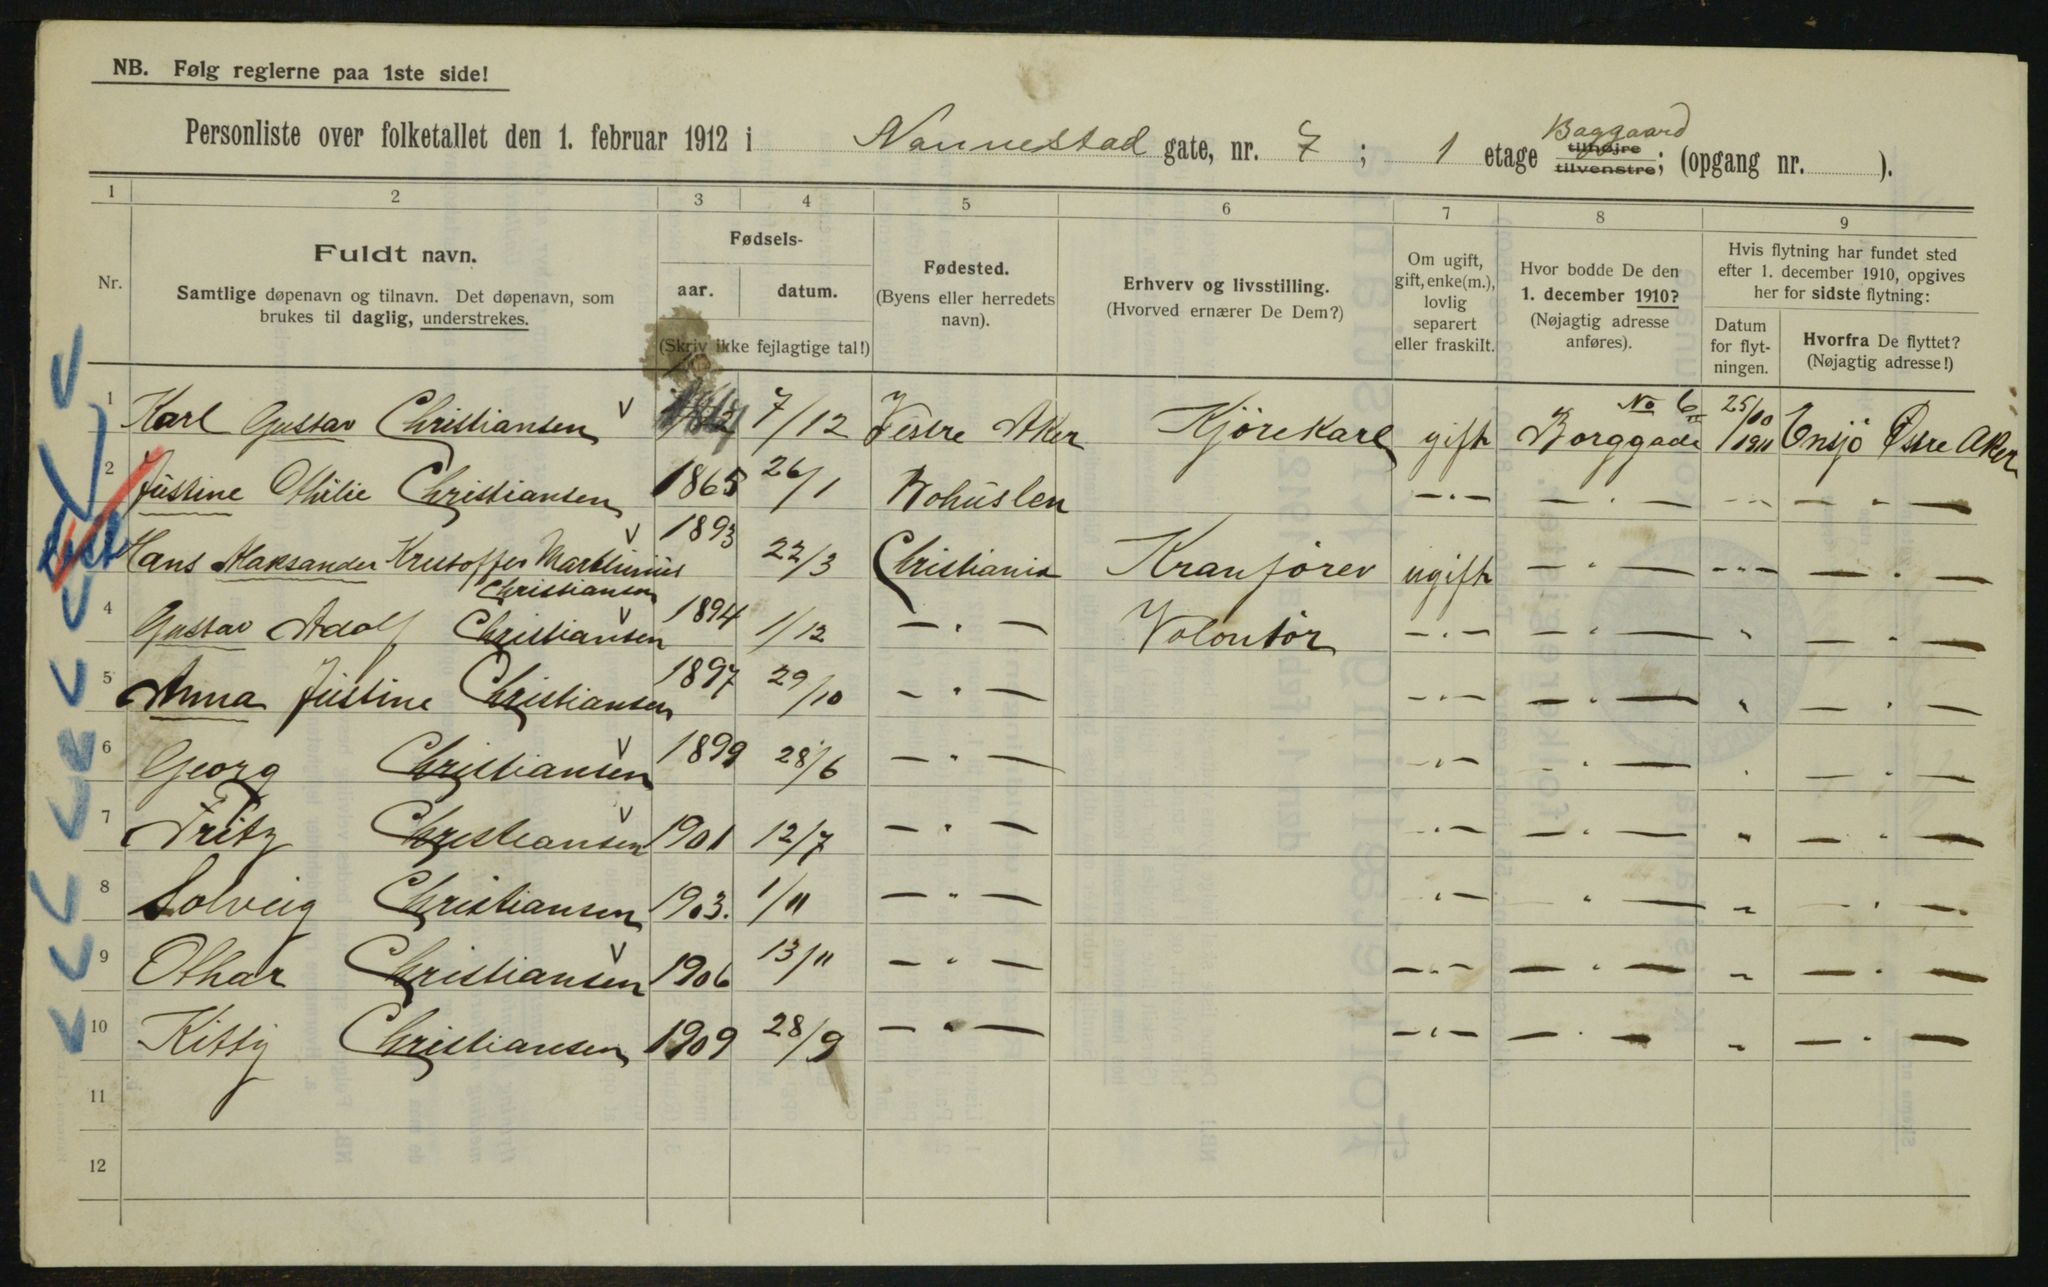 NB. Følg reglerne paa 1ste side!
Personliste over folketallet den 1. februar 1912 i Nannestad gate, nr. 7 ; 1 etage Baggaard tilhøjre tilvenstre; (opgang nr. ).
1 2 3 4 5 6 7 8 9
Nr.
Fuldt navn.
Samtlige døpenavn og tilnavn. Det døpenavn, som
brukes til daglig, understrekes.
Fødsels-
aar. datum.
(Skriv ikke fejlagtige tal!)
Fødested.
(Byens eller herredets
navn).
Erhverv og livsstilling.
(Hvorved ernærer De Dem?)
Om ugift,
gift, enke(m.),
lovlig
separert
eller fraskilt.
Hvor bodde De den
1. december 1910?
(Nøjagtig adresse
anføres).
Hvis flytning har fundet sted
efter 1. december 1910, opgives
her for sidste flytning:
Datum
for flyt-
ningen.
Hvorfra De flyttet?
(Nøjagtig adresse!)
1 Karl Gustav Christiansen 7/12 Vestre Aker Kjørekarl gift Borggade No 6 25/10 1911 Ensjø Østre Aker
2 Justine Othilie Christiansen 1865 26/1 Bohuslen —"— —"— —"— —"—
Hans Aleksander Kristoffer Marthinius
Christiansen 1893 22/3 Christiania Kranfører ugift —"— —"— —"—
4 Gustav Adolf Christiansen 1894 1/12 —"— Volontør —"— —"— " —"—
5 Anna Justine Christiansen 1897 29/10 —"— —"— —"— " —"—
6 Georg Christiansen 1899 28/6 —"— —"— —"— " —"—
7 Fritz Christiansen 1901 12/7 —"— —"— —"— " —"—
8 Solveig Christiansen 1903. 1/11 —"— —"— —"— " —"—
9 Othar Christiansen 1906 13/11 —"— —"— —"— " —"—
10 Kitty Christiansen 1909 28/9 —"— —"— —"— " —"—
11
12